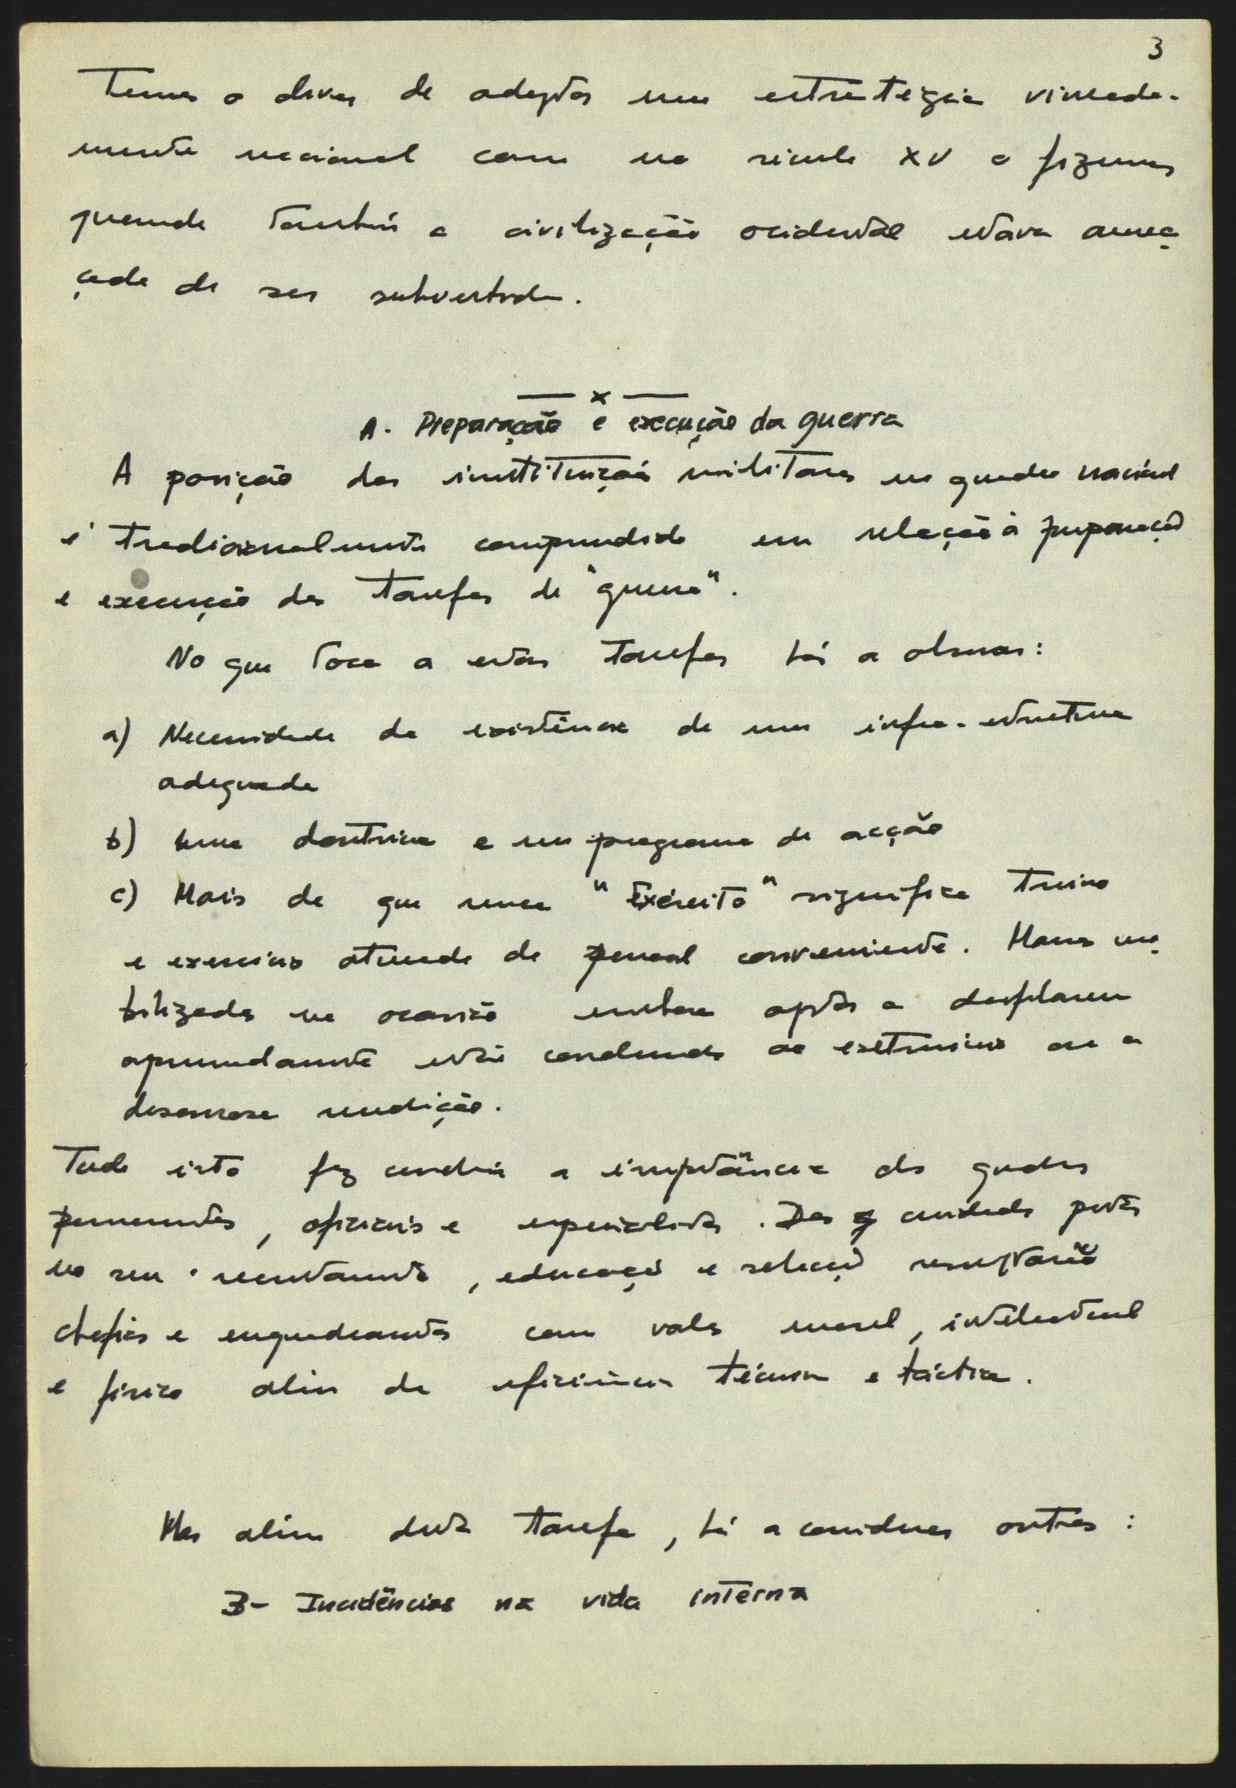 3
Temos o dever de adoptar uma estratégia vincada-
mente nacional como no século XV o fizemos
quando também a civilização ocidental estava amea-
çada de ser subvertida.
— x —
A. Preparação e execução da guerra
A posição das instituições militares no quadro nacional
é tradicionalmente compreendida em relação à preparação
e execução das tarefas de "guerra".
No que toca a estas tarefas há a observar:
a) Necessidade da existência de uma infra-estrutura
adequada
b) uma doutrina e um programa de acção
c) Mais do que nunca "Exército" significa treino
e exercício de pessoal conveniente. Massas mo-
bilizadas na ocasião embora aptas a desfilarem
aprumadamente estão condenadas ao extermínio ou a
desonrosa rendição.
Tudo isto faz a importância dos quadros
permanentes, oficiais e especialistas. Dos cuidados postos
no seu recrutamento, educação e selecção resultarão
chefias e enquadramentos com valor moral, intelectual
e físico além de eficiência técnica e táctica.
Mas além desta tarefa, há a considerar outras:
B- Incidências na vida interna